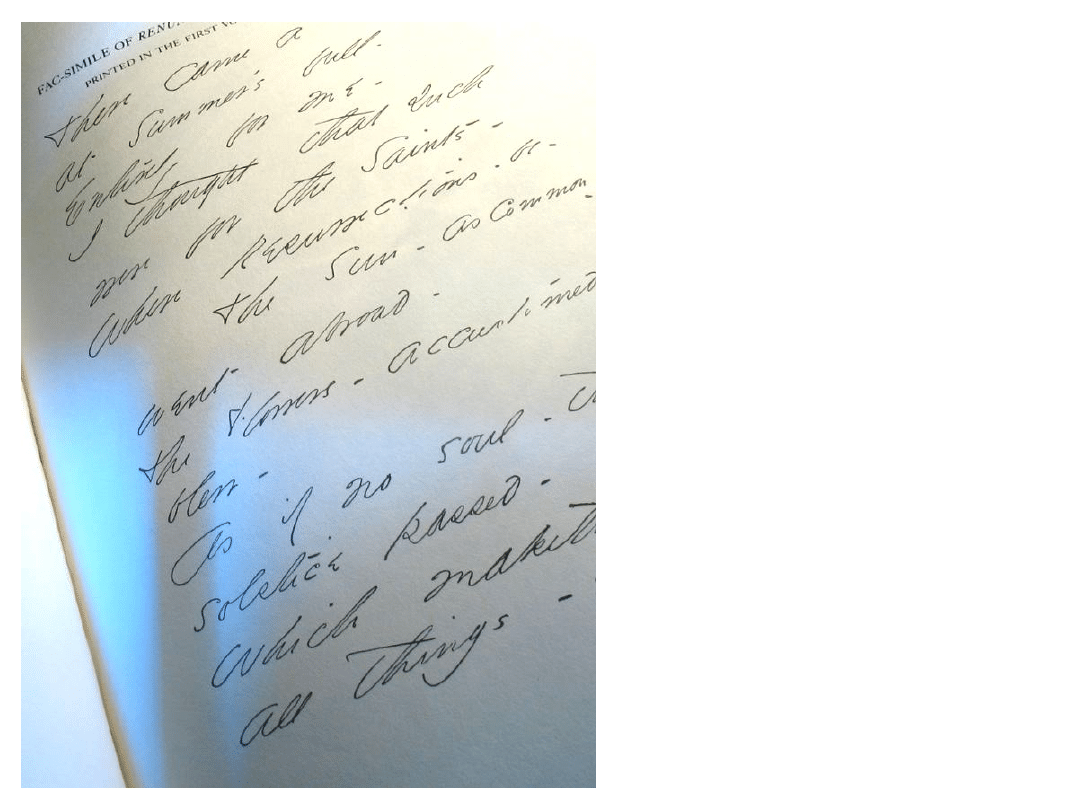 FAC-SIMILE OF
PRINTED IN THE FIRST
There came a
at Summer's full-
Entirely for me-
I thought that such
were for the Saints-
When Resurrections - be-
The Sun - as common-
went abroad -
The flowers - accustomed
blew -
As if no soul -
solstice passed -
Which maketh
all things -